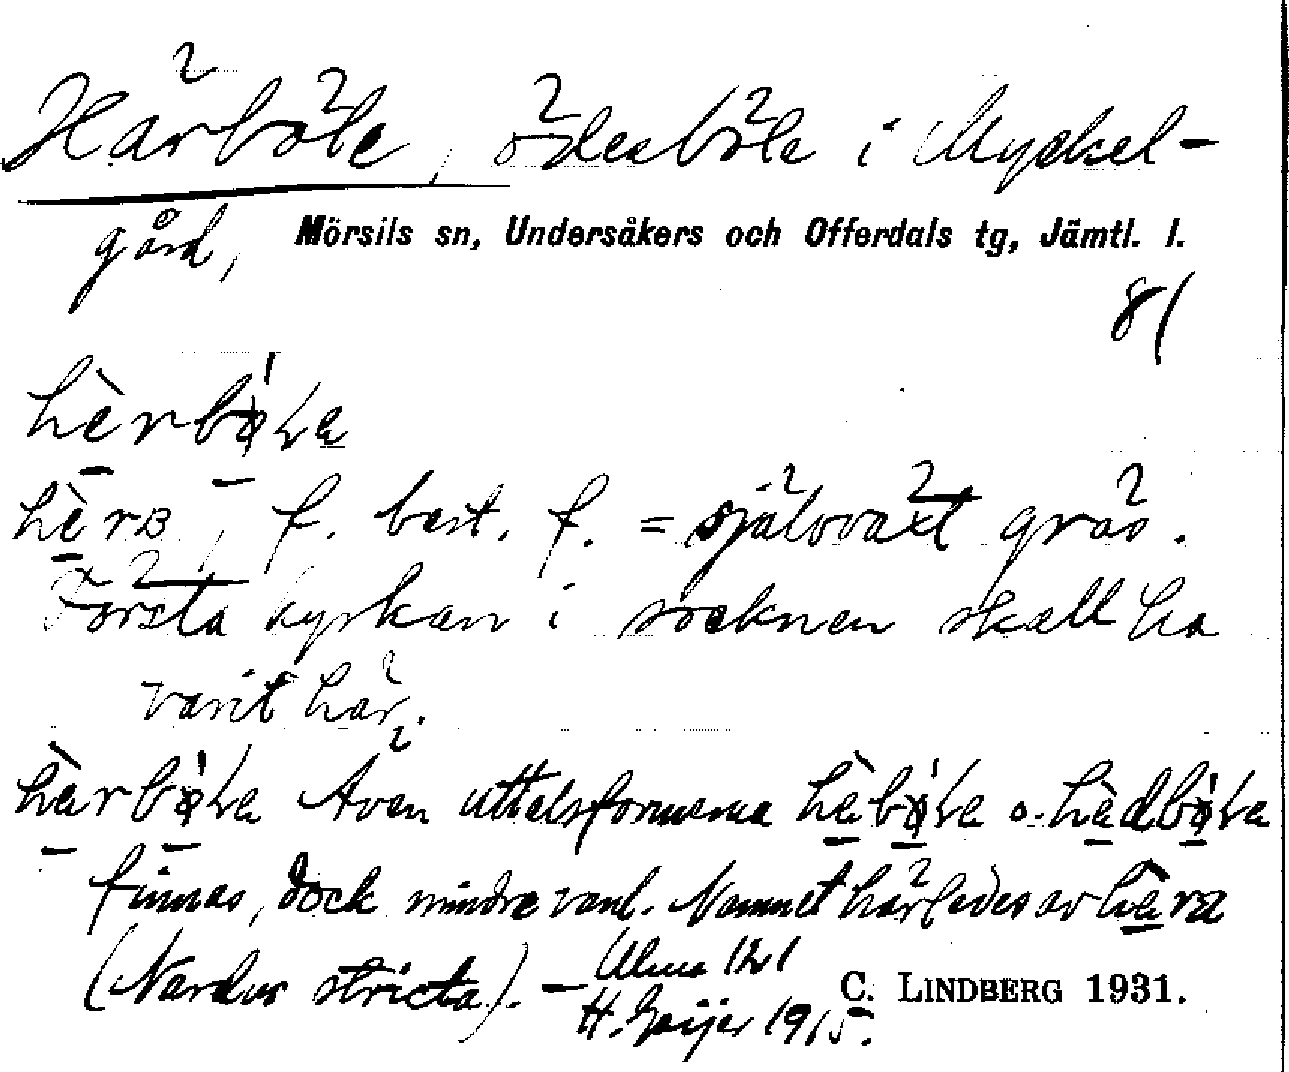 Härböle, ödesböle i Myckel-
gård, Mörsils sn, Undersåkers och Offerdals tg, Jämtl. l.
81
hèrbø̀ʟa
hèra, f. best. f. = självväxt gräs.
Första kyrkan i socknen skall ha
varit här.
hèrbø̀ʟa Även uttalsformerna hèbø̀ʟa o. hèdbø̀ʟa
finnas, dock mindre vanl. Namnet härledes av hèra
(Nardus stricta). –
H. Geijer 1915. C. LINDBERG 1931.